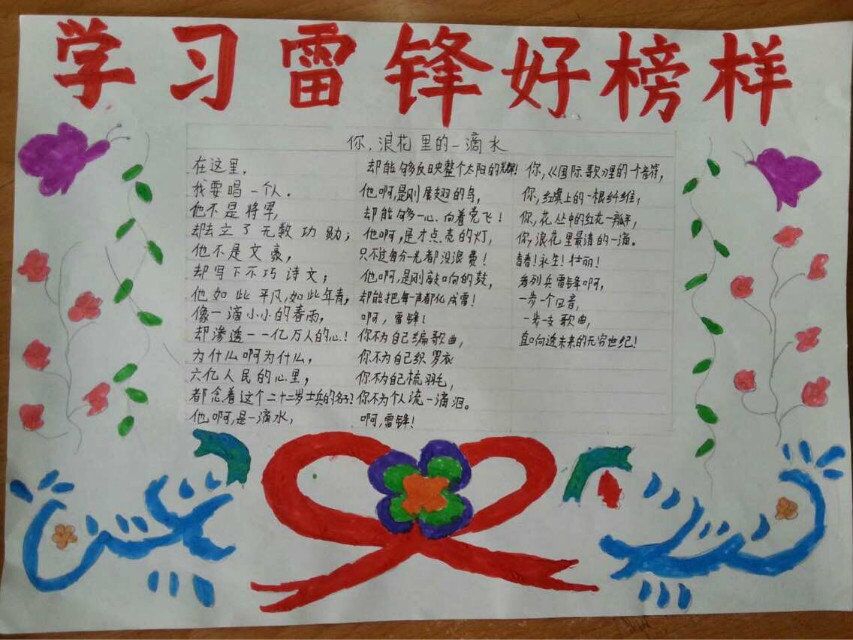 学习雷锋好榜样
你,浪花里的一滴水
在这里,
我要唱一个人。
他不是将军,
却立了无数功勋;
他不是文豪,
却写下不巧诗文;
他如此平凡,如此年青,
像一滴小小的春雨,
却渗透一一亿万人的心!
为什么啊为什么,
六亿人民的心里,
都念着这个二十二岁士兵的名字!
他啊,是一滴水,
却能够反映整个太阳的光辉!
他啊,是刚展翅的鸟,
却能够一心向着党飞!
他啊,是才点亮的灯,
只不过每分光都没浪费!
他啊,是刚敲响的鼓,
却能把每声都化成雷!
啊,雷锋!
你不为自己编歌曲,
你不为自己织罗衣
你不为自己梳羽毛,
你不为个人流一滴泪。
啊,雷锋!
你,从国际歌里的一个音符,
你,红旗上的一根纤维,
你,花丛中的红花一瓣,
你,浪花里最清的一滴。
青春!永生!壮丽!
看列兵雷锋啊,
一步一个回音,
一步一支歌曲,
直响近未来的无穷世纪!